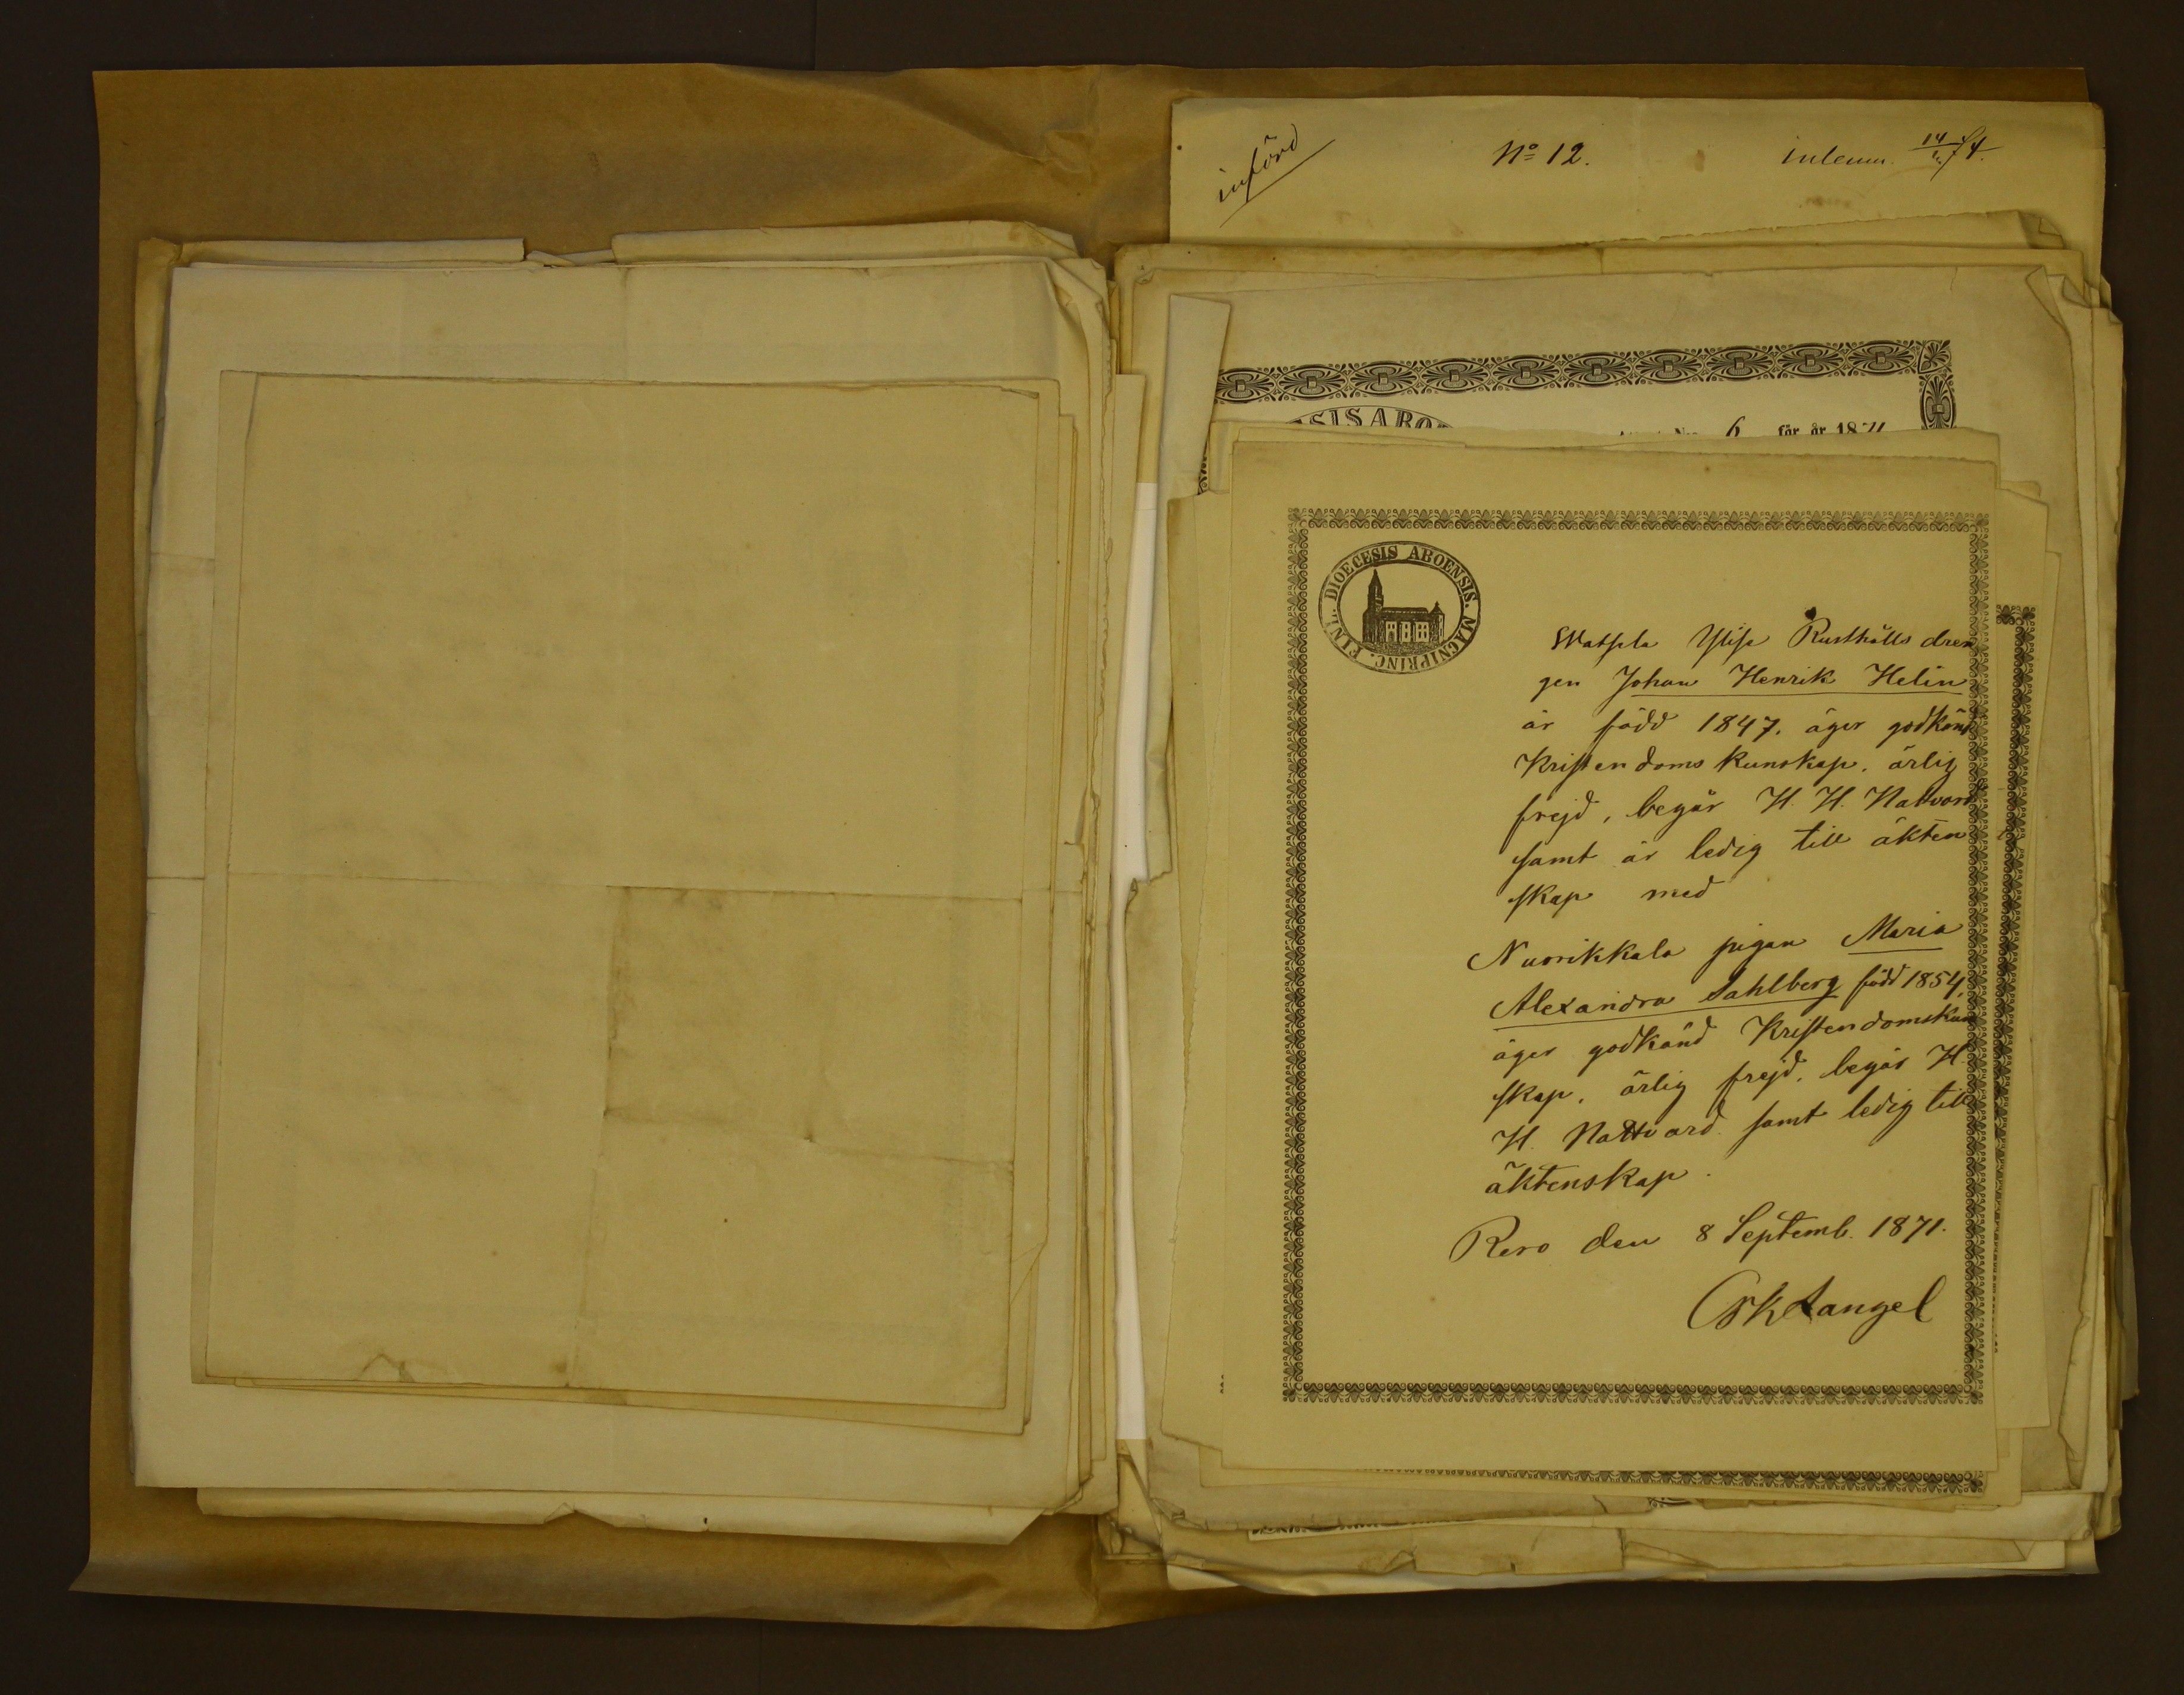 införd
No 12.
inlemn. 14/74.
SISABO
6 för år 1871
DIOECESIS ABOENSIS. MAGNIPRINC. FINL.
Watsela Ylise Rusthålls dren
gen Johan Henrik Helin
är född 1847, äger godkänd
Kristendoms kunskap, ärlig
frejd, begår H. H. Nattvard
samt är ledig till äkten
skap med
Nuorikkala pigan Maria
Alexandra Sahlberg född 1854,
äger godkänd Kristendomskun
skap, ärlig frejd, begår H.
H. Nattvard samt ledig till
äktenskap.
Reso den 8 Septemb. 1871.
Langel